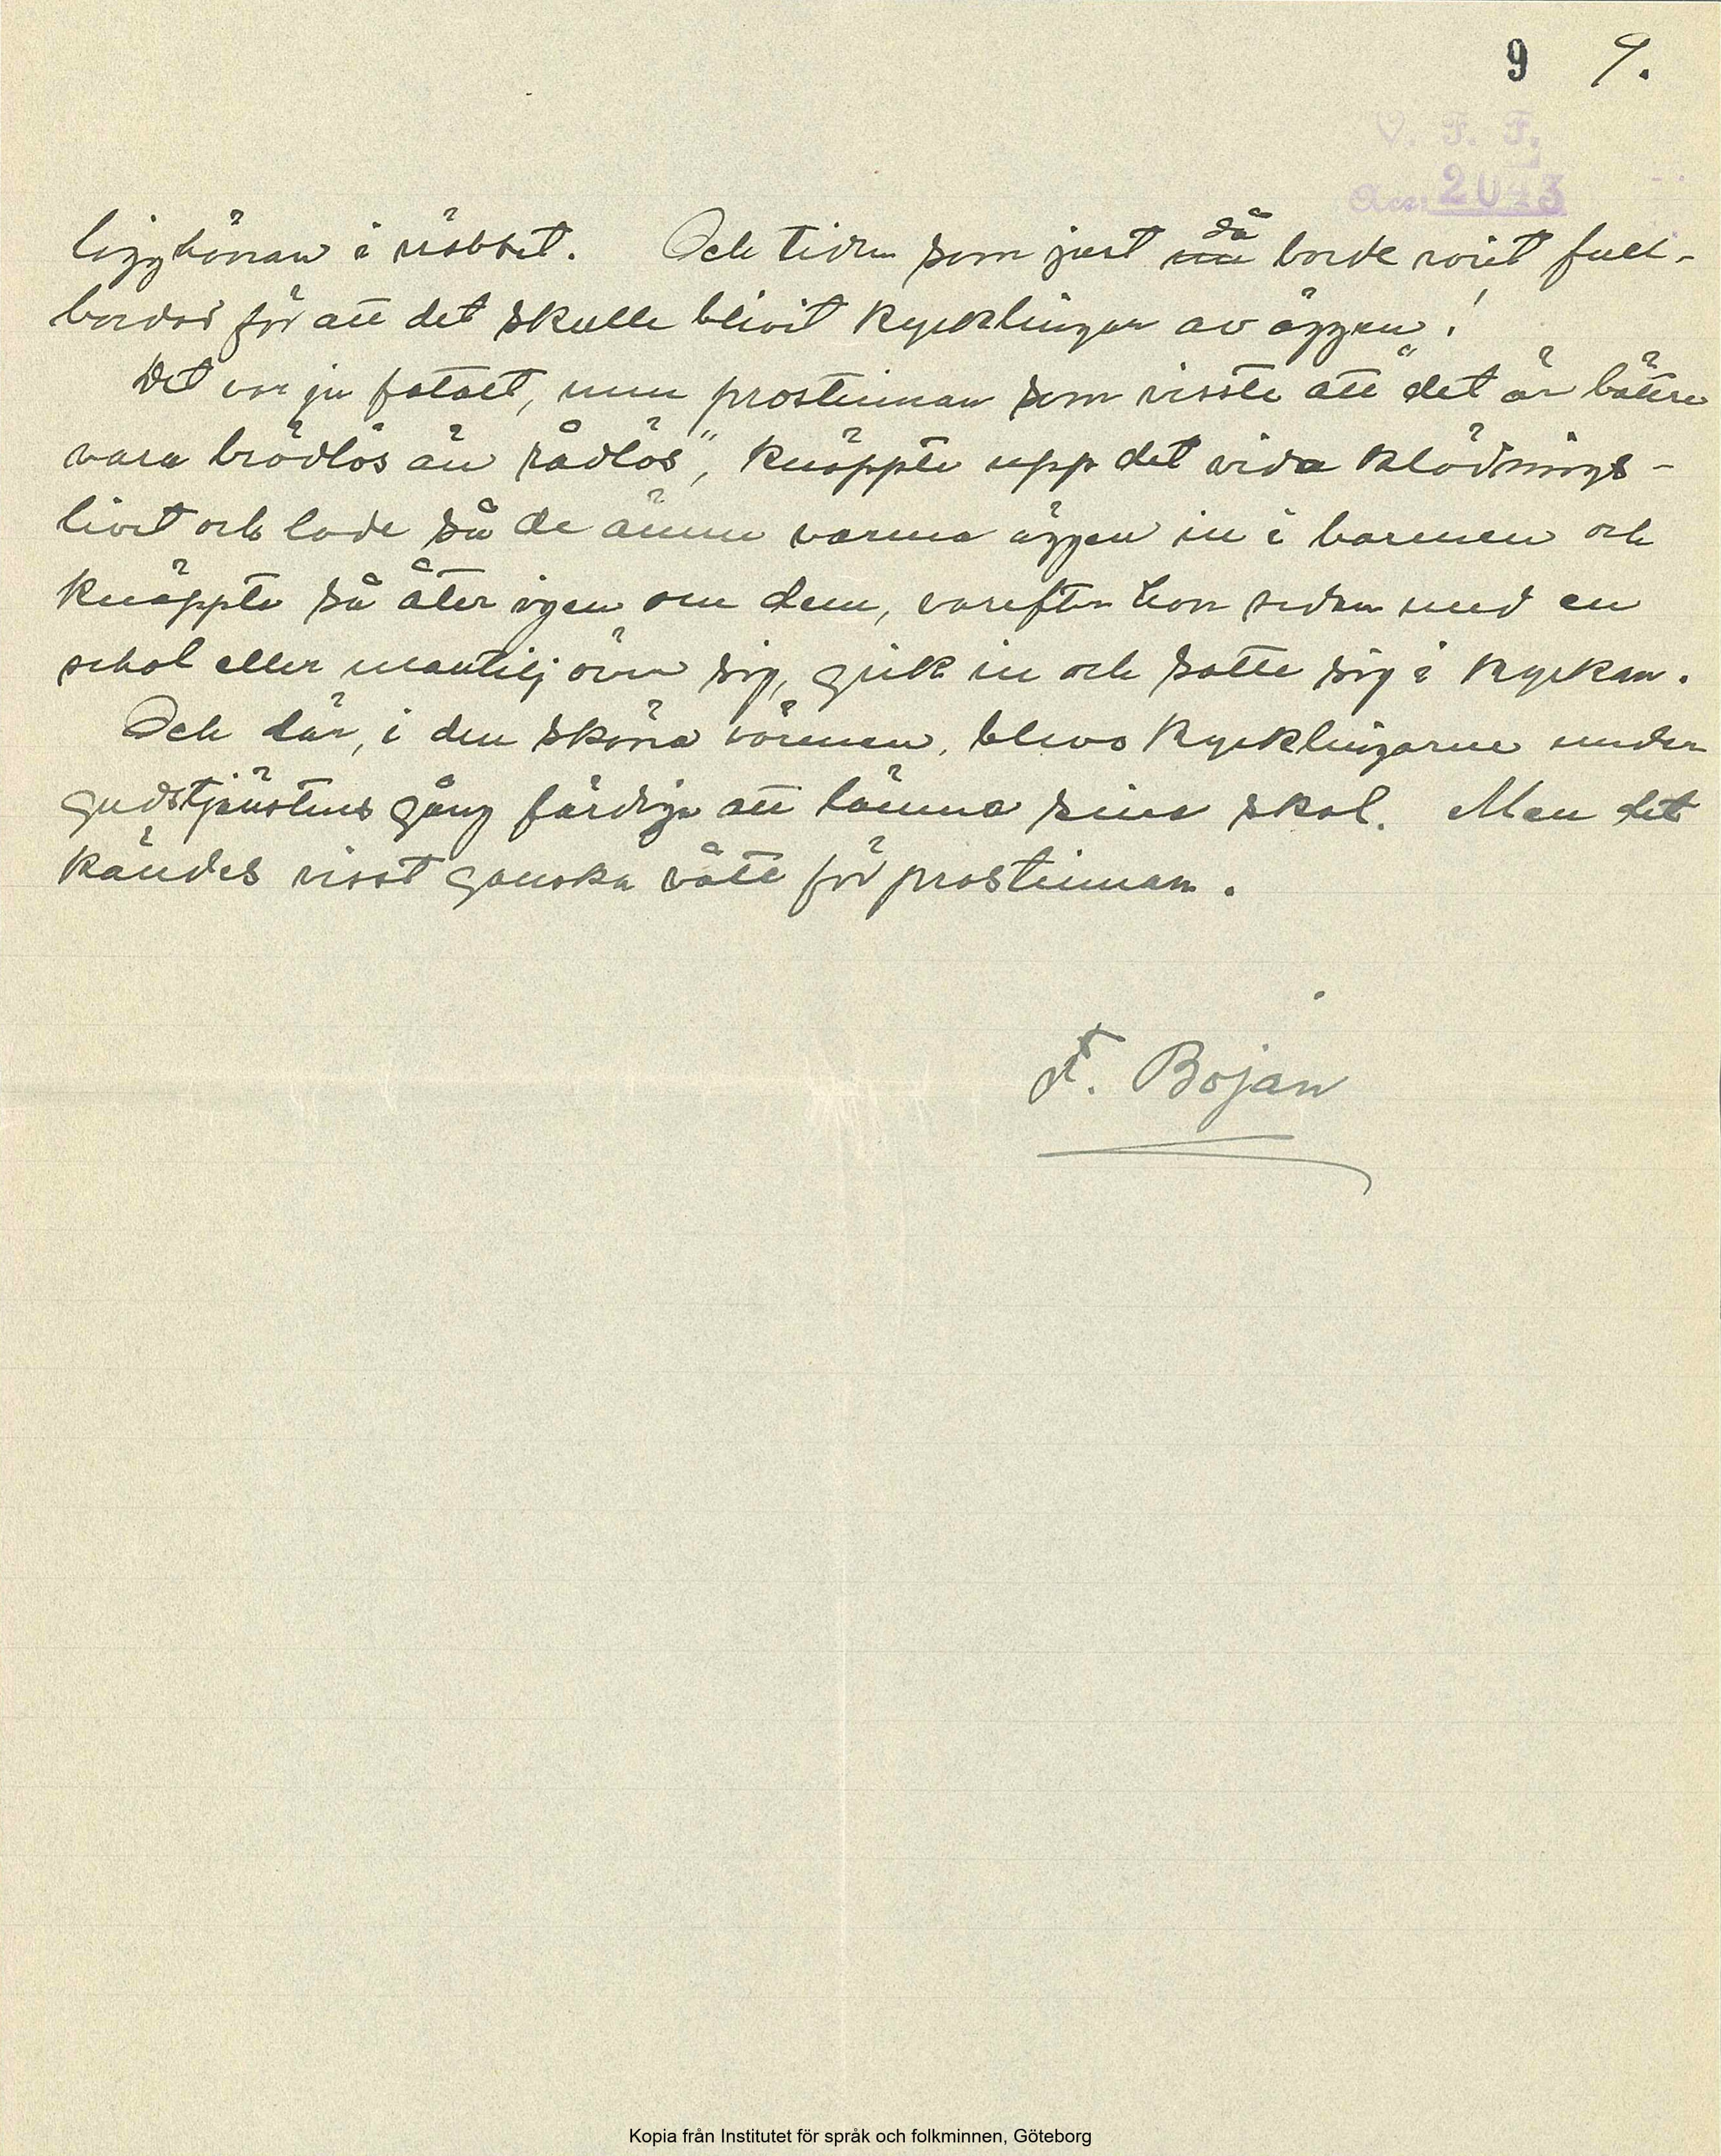 9 9.
V. F. F.
Acc. 2043
ligghönan i näbbet. Och tiden som just nu då borde varit full-
bordad för att det skulle blivit kycklingar av äggen!
Det var ju fatalt, men prostinnan som visste att "det är bättre
vara brödlös än rådlös", knäppte upp det vida klädnings-
livet och lade så de ännu varma äggen in i barmen och
knäppte så åter igen om dem, varefter hon sedan med en
schal eller mantilj över sig, gick in och satte sig i kyrkan.
Och där, i den sköna värmen, blevo kycklingarne under
gudstjänstens gång färdiga att lämna sina skal. Men det
kändes visst ganska vått för prostinnan.
F. Bojan
Kopia från Institutet för språk och folkminnen, Göteborg